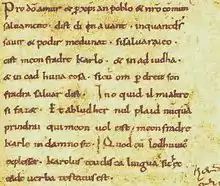 Pro dō amur & pxp̄ian poblo & nr̄o comun
saluament. dist di en auant. inquantdſ
sauir & podir medunat. sisaluaraieo
cist meon fradre karlo. & in ad iudha.
& in cad huna cosa. sicū om p dreit son
fradra saluar dist. Ino quid il mialtre
si faz&. Et abludher nul plaid nūquā
prindrai qui meon uol cist meonfradre
karle in damno sit. Quod cū lodhuuic
explesset. karolus teudisca lingua
eadē uerba testatus est.